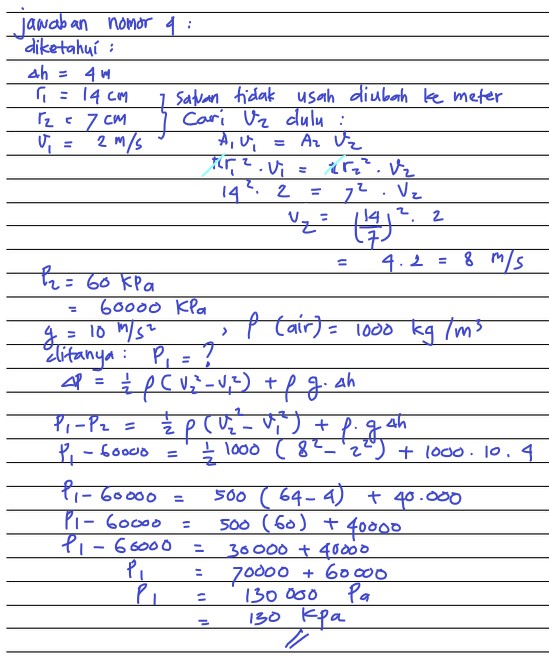 jawaban nomor 4 :
diketahui :
Δh = 4 m
r₁ = 14 cm } satuan tidak usah diubah ke meter
r₂ = 7 cm } Cari V₂ dulu :
V₁ = 2 m/s A₁ V₁ = A₂ V₂
πr₁² . V₁ = πr₂² . V₂
14² . 2 = 7² . V₂
V₂ = (14/7)² . 2
= 4 . 2 = 8 m/s
P₂ = 60 KPa
= 60000 KPa
g = 10 m/s² , ρ (air) = 1000 kg/m³
ditanya : P₁ = ?
ΔP = ½ ρ (V₂² - V₁²) + ρ g . Δh
P₁ - P₂ = ½ ρ (V₂² - V₁²) + ρ . g Δh
P₁ - 60000 = ½ 1000 (8² - 2²) + 1000 . 10 . 4
P₁ - 60000 = 500 (64 - 4) + 40.000
P₁ - 60000 = 500 (60) + 40000
P₁ - 60000 = 30000 + 40000
P₁ = 70000 + 60000
P₁ = 130 000 Pa
= 130 KPa